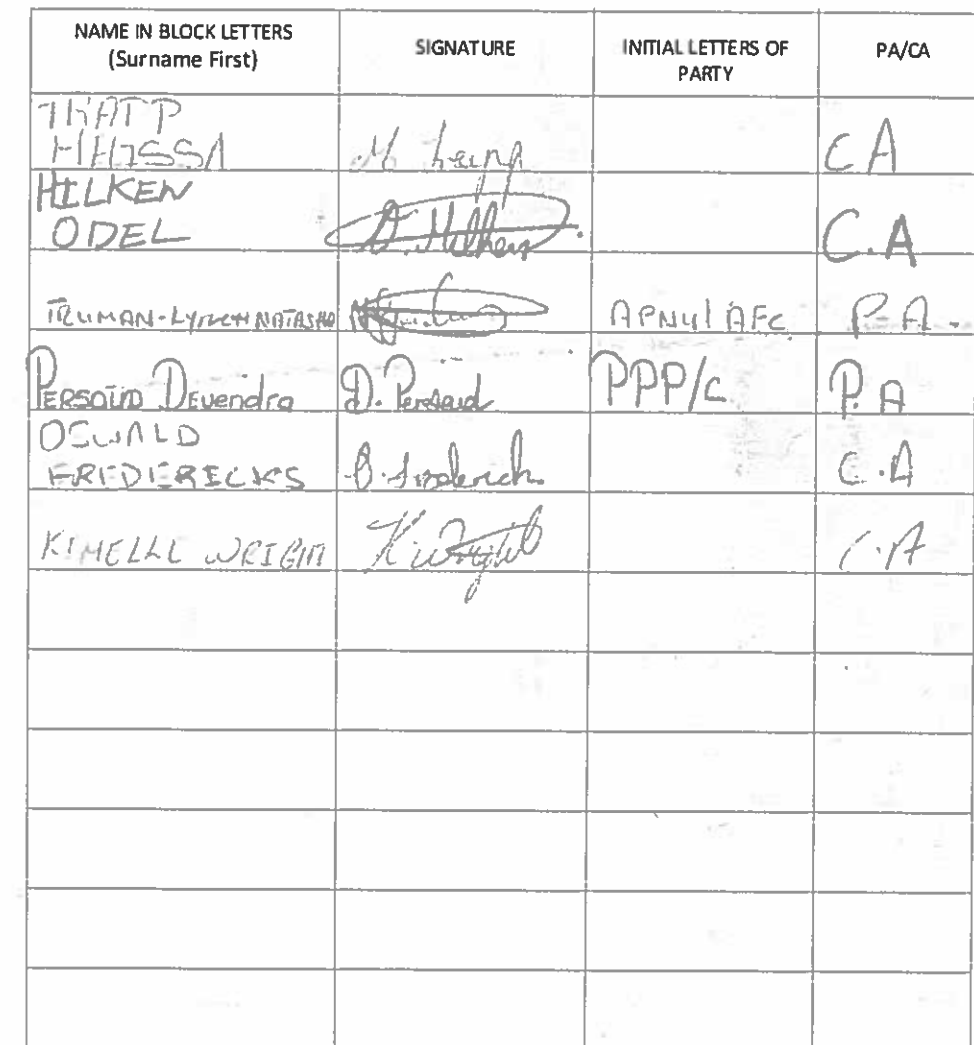 NAME IN BLOCK LETTERS
(Surname First)
SIGNATURE
INITIAL LETTERS OF
PARTY
PA/CA
CA
HILKEN
ODEL
C.A
TRUMAN-LYNCH NATASHA
APNU/AFC
P.A.
PERSAUD Devendra
D. Persaud
PPP/C
P.A
OSWALD
FREDERICKS
C.A
KIMELLL WRIGHT
K. Wright
C.A